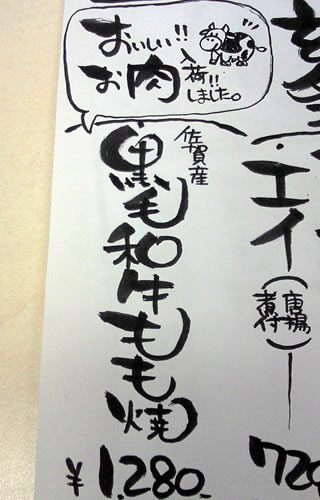 おいしい!!
お肉
入荷!!
しました。
佐賀産
黒毛和牛もも焼
¥1,280
エイ
(唐揚
煮付)
720